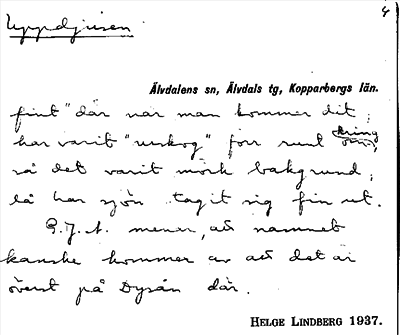 Uppdjusen
4
Älvdalens sn, Älvdals tg, Kopparbergs län.
fint" där när man kommer dit;
har varit "urskog" förr runt kring
så det varit mörk bakgrund;
då har sjön tagit sig fin ut.
G.J.A. menar, att namnet
kanske kommer av att det är
överst på Dysån där.
HELGE LINDBERG 1937.